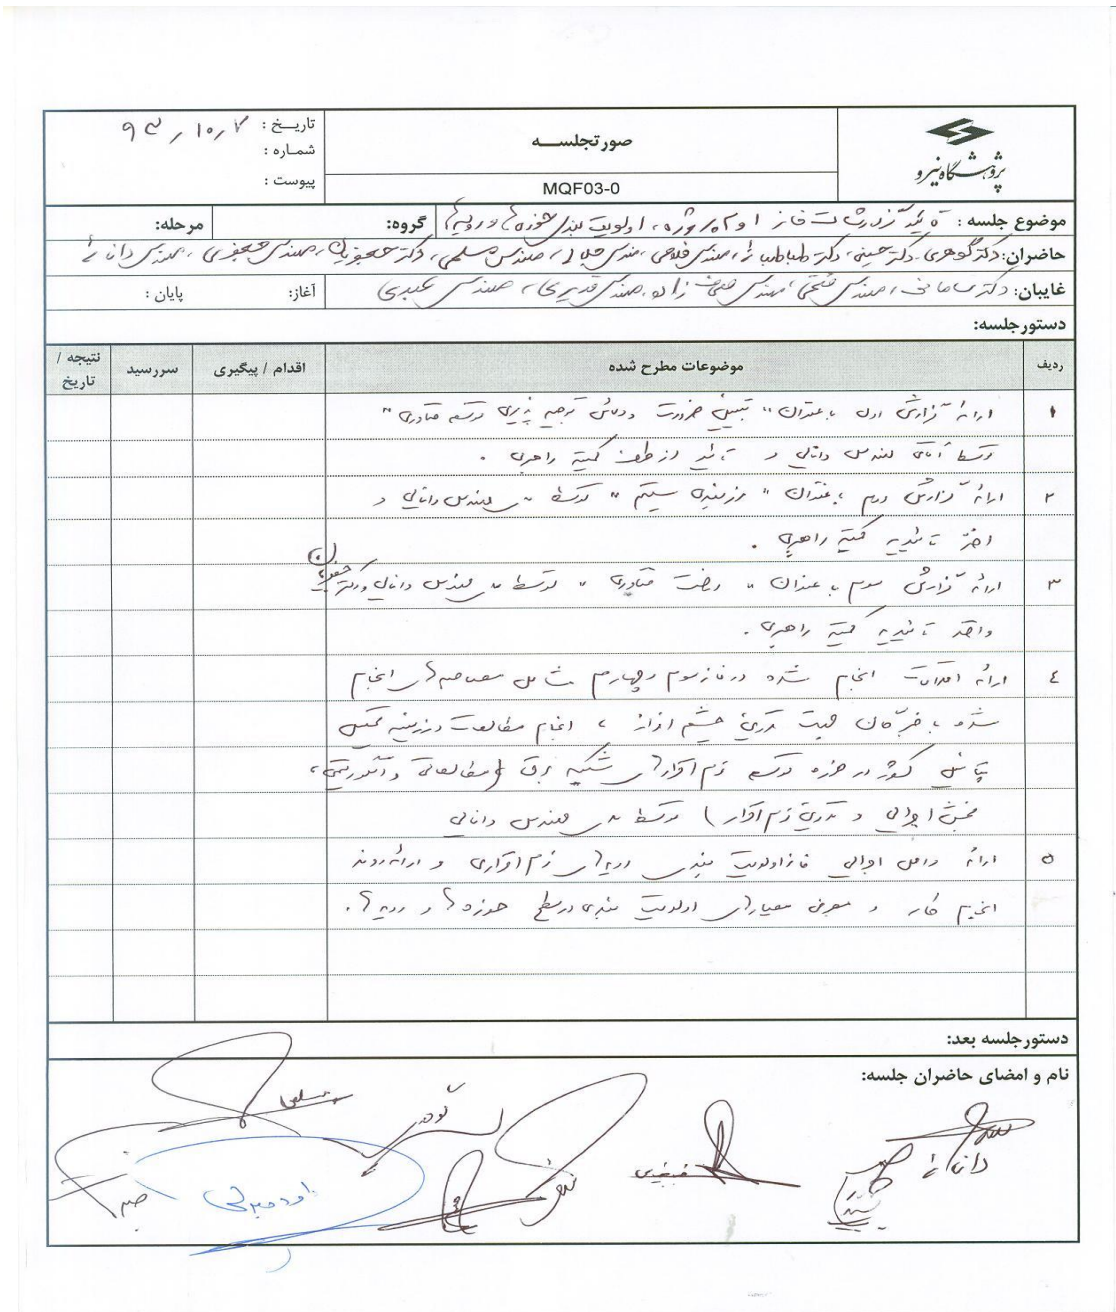 پژوهشگاه نیرو
صورتجلسه
MQF03-0
تاریخ : ۹۳/۱۰/۷
شماره :
پیوست :
موضوع جلسه : تائید گزارشات فاز ۱ و ۲ پروژه، اولویت بندی حوزه ها و رویه ها
گروه:
مرحله:
حاضران: دکتر گوهری، دکتر حسینی، دکتر طباطبائی، مهندس فلاحی، مهندس، مهندس مسلمی، دکتر یعقوبیان، مهندس، مهندس دانائی
غایبان: دکتر سامانی، مهندس فتحی، مهندس زاده، مهندس قدیری، مهندس عبدی
آغاز:
پایان :
دستورجلسه:
ردیف
موضوعات مطرح شده
اقدام / پیگیری
سررسید
نتیجه / تاریخ
۱ ارائه گزارش اول با عنوان " تبیین ضرورت و توجیه پذیری توسعه فناوری "
توسط آقای مهندس دانایی و تائید از طرف کمیته راهبری .
۲ ارائه گزارش دوم با عنوان " مرزبندی سیستم " توسط مهندس دانایی و
اخذ تائیدیه کمیته راهبری .
۳ ارائه گزارش سوم با عنوان " درخت فناوری " توسط مهندس دانایی و دکتر
و اخذ تائیدیه کمیته راهبری .
٤ ارائه اقدامات انجام شده در فاز سوم و چهارم شامل مصاحبه های انجام
شده با خبرگان جهت تدوین چشم انداز ، انجام مطالعات در زمینه
پتانسیل کشور در حوزه توسعه نرم افزارهای شبکه برق (مطالعاتی و آکادمیکی،
بخش اجرائی و تدوین نرم افزار) توسط مهندس دانایی
۵ ارائه مراحل اجرائی فاز اولویت بندی رویه های نرم افزاری و ارائه روند
انجام کار و معرفی معیارهای اولویت بندی در سطح حوزه ها و رویه ها.
دستورجلسه بعد:
نام و امضای حاضران جلسه:
دانائی
مسلمی
گوهری